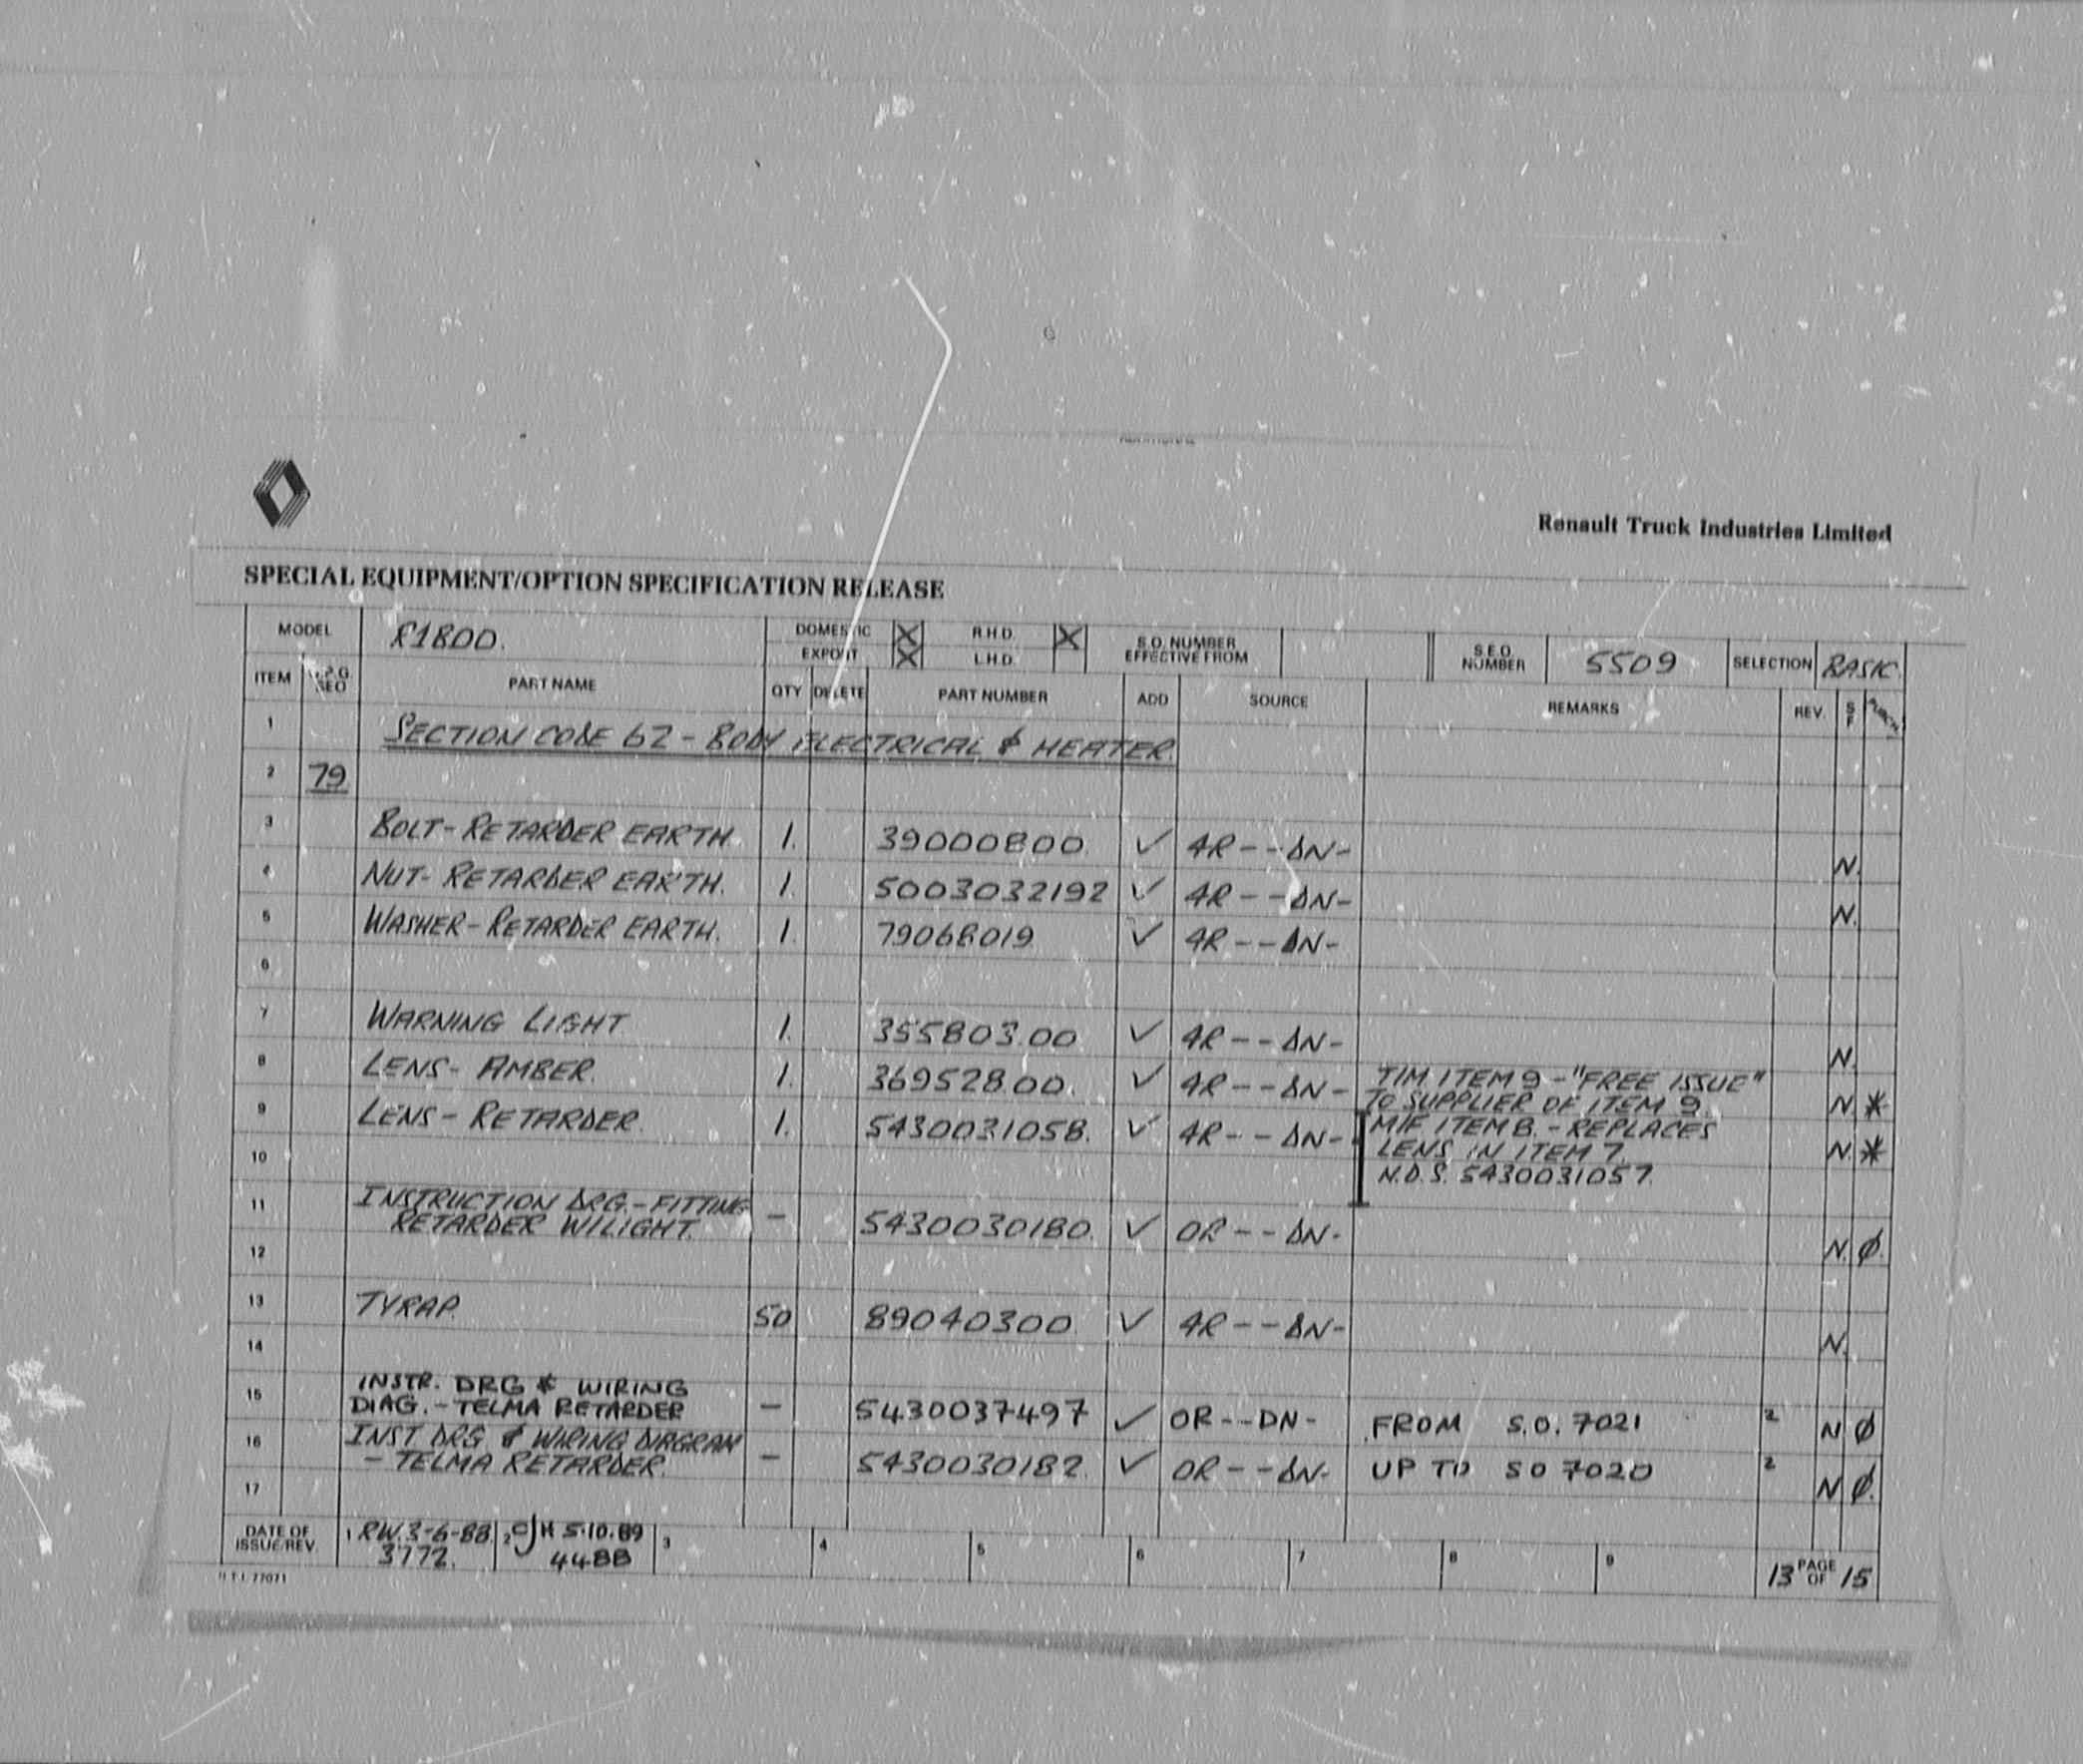 Renault Truck Industries Limited
SPECIAL EQUIPMENT/OPTION SPECIFICATION RELEASE
MODEL R1800. DOMESTIC X R.H.D. X S.O. NUMBER EFFECTIVE FROM S.E.O. NUMBER 5509 SELECTION BASIC
EXPORT X L.H.D.
ITEM PART NAME QTY DELETE PART NUMBER ADD SOURCE REMARKS REV. S F
1 SECTION CODE 62 - BODY ELECTRICAL & HEATER.
2 79
3 BOLT - RETARDER EARTH. 1. 39000800 ✓ 4R - - DN - N.
4 NUT - RETARDER EARTH. 1. 5003032192 ✓ 4R - - DN - N.
5 WASHER - RETARDER EARTH. 1. 79068019 ✓ 4R - - DN -
6
7 WARNING LIGHT 1. 355803.00 ✓ 4R - - DN - N.
8 LENS - AMBER. 1. 369528.00. ✓ 4R - - DN - TIM ITEM 9 - "FREE ISSUE"
TO SUPPLIER OF ITEM 9. N. *
9 LENS - RETARDER. 1. 5430031058. ✓ 4R - - DN - M/F ITEM 8. - REPLACES
LENS IN ITEM 7. N. *
10 N.D.S. 5430031057.
11 INSTRUCTION DRG. - FITTING
RETARDER W/LIGHT. - 5430030180. ✓ OR - - DN - N. Ø.
12
13 TYRAP. 50 89040300 ✓ 4R - - DN - N.
14
15 INSTR. DRG & WIRING
DIAG. - TELMA RETARDER - 5430037497 ✓ OR - - DN - FROM S.O. 7021 2 N Ø
16 INST DRG & WIRING DIAGRAM
- TELMA RETARDER. - 5430030182. ✓ OR - - DN - UP TO SO 7020 2 N Ø.
17
DATE OF ISSUE/REV. 1 RW. 3-6-88. 2 CJH 5.10.89 3 4 5 6 7 8 9 13 PAGE OF 15
3772. 4488
R.T.I. 77071